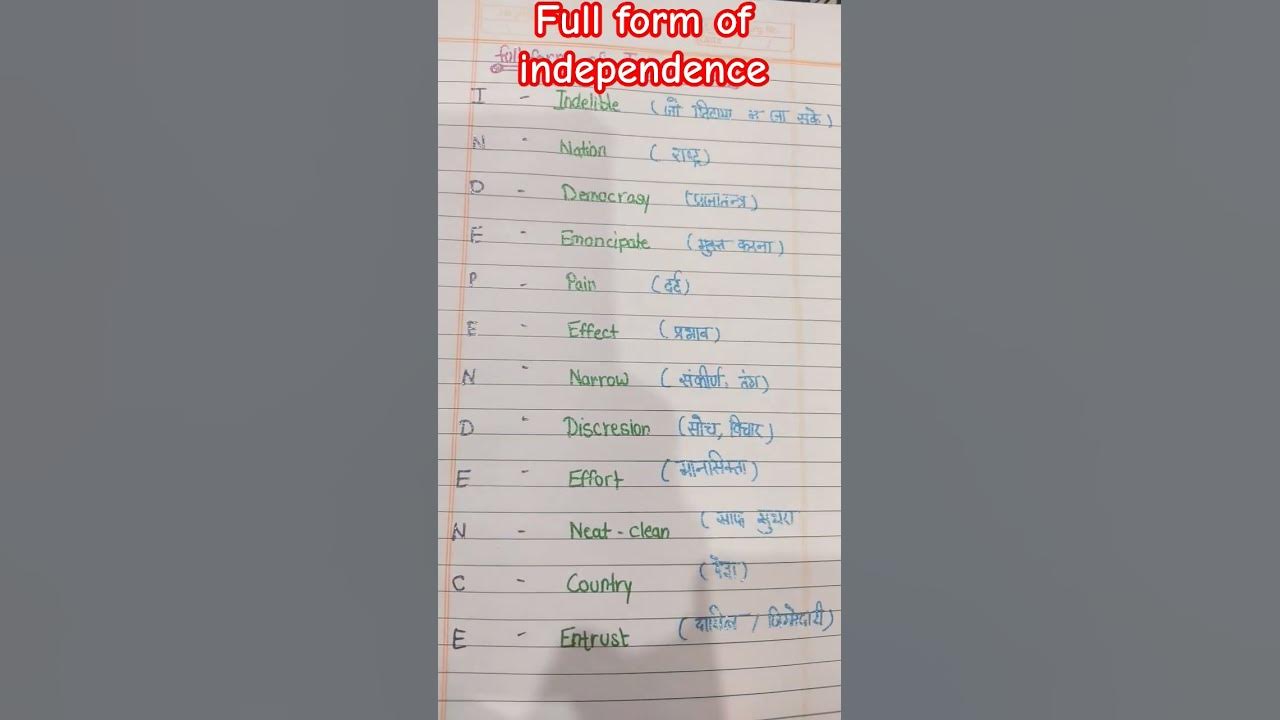 Full form of
independence
I - Indelible (जो मिटाया न जा सके)
N - Nation (राष्ट्र)
D - Democrasy (प्रजातन्त्र)
E - Emancipate (मुक्त करना)
P - Pain (दर्द)
E - Effect (प्रभाव)
N - Narrow (संकीर्ण, तंग)
D - Discresion (सोच, विचार)
E - Effort (मानसिकता)
N - Neat - clean (साफ सुथरा
C - Country (देश)
E - Entrust (दायित्व / जिम्मेदारी)